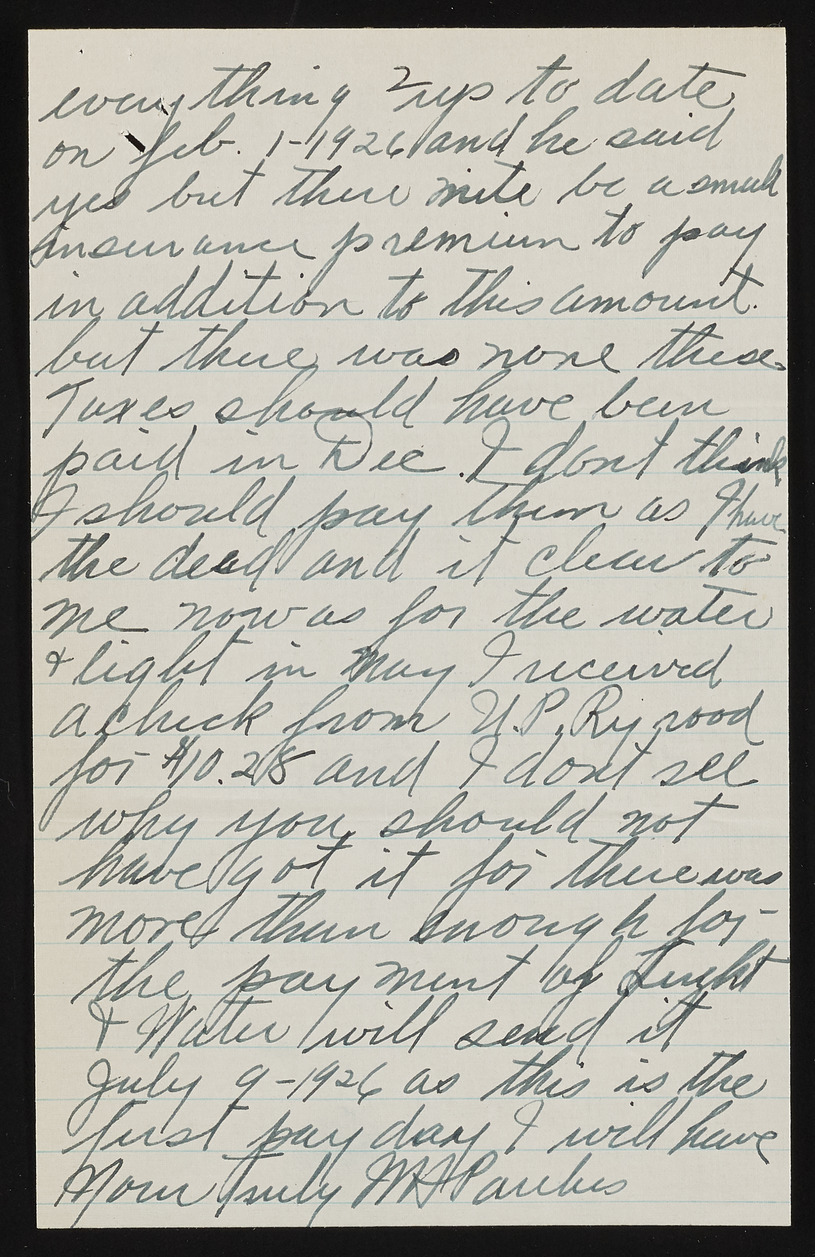 everything up to date
on Feb. 1-1926 and he said
yes but there mite be a small
insurance premium to pay
in addition to this amount.
but there was none these
Taxes should have been
paid in Dec. I dont think
I should pay them as I have
the deed and it clear to
me now as for the water
& light in May I received
a check from U.P. Ry
for $10.28 and I dont see
why you should not
have got it for there was
more than enough for
the payment of Light
& Water will send it
July 9-1926 as this is the
first payday I will have
Your Truly